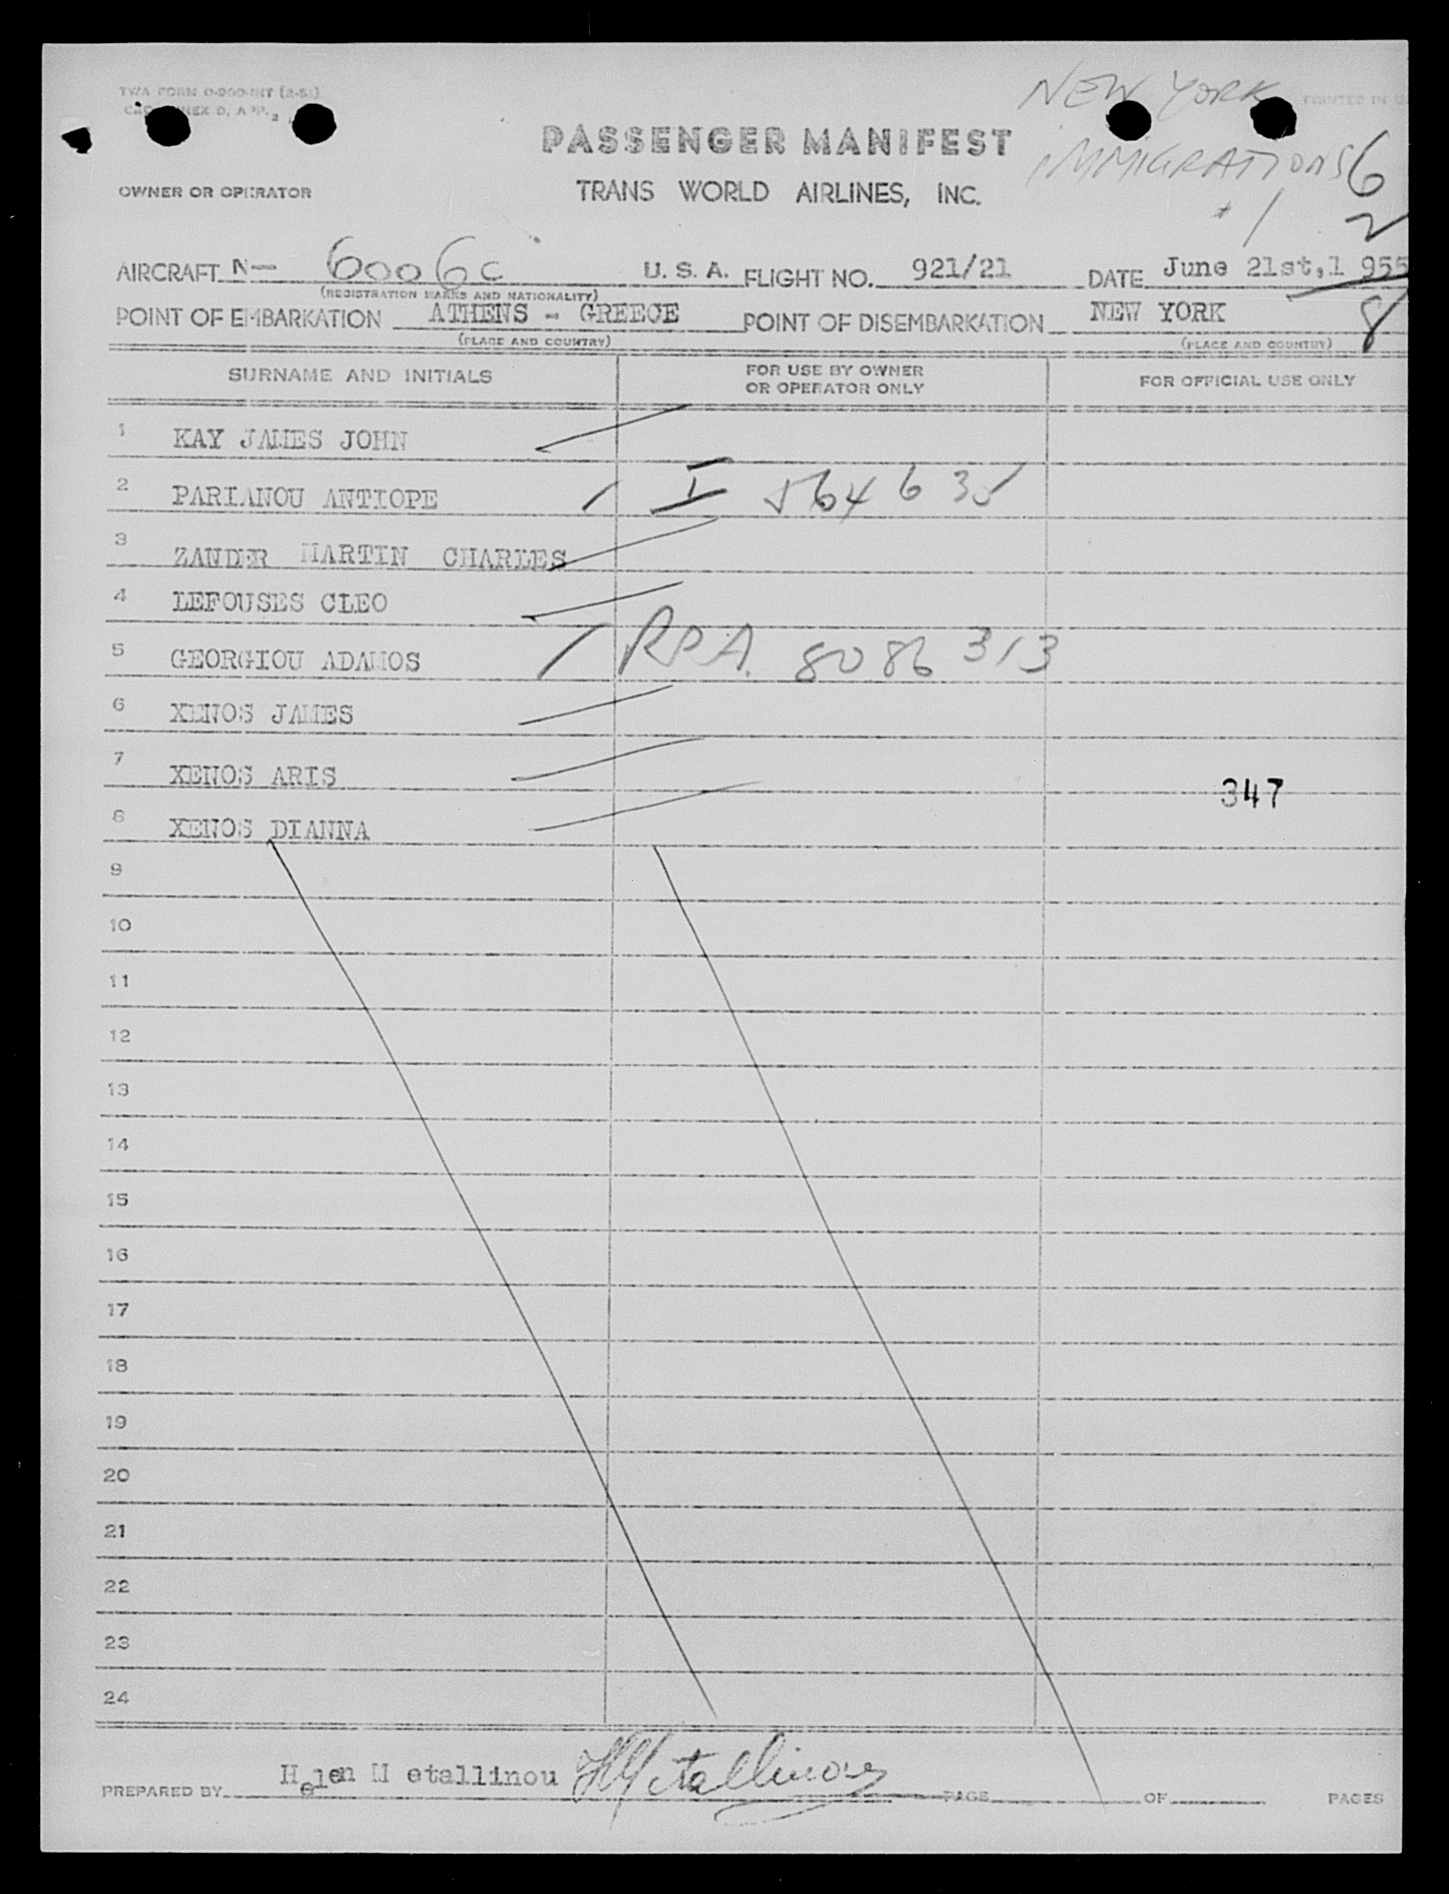 TWA FORM O-200-INT (2-51)
NEW YORK
PRINTED IN
PASSENGER MANIFEST
IMMIGRATIONS 6
OWNER OR OPERATOR
TRANS WORLD AIRLINES, INC.
#1 2
AIRCRAFT N— 6006C U. S. A. FLIGHT NO. 921/21 DATE June 21st,1 955
(REGISTRATION MARKS AND NATIONALITY)
POINT OF EMBARKATION ATHENS - GREECE POINT OF DISEMBARKATION NEW YORK 8
(PLACE AND COUNTRY) (PLACE AND COUNTRY)
SURNAME AND INITIALS FOR USE BY OWNER OR OPERATOR ONLY FOR OFFICIAL USE ONLY
1 KAY JAMES JOHN
2 PARIANOU ANTIOPE I 564635
3 ZANDER MARTIN CHARLES
4 LEFOUSES CLEO
5 GEORGIOU ADAMOS RPA. 8086313
6 XENOS JAMES
7 XENOS ARIS
347
8 XENOS DIANNA
9
10
11
12
13
14
15
16
17
18
19
20
21
22
23
24
PREPARED BY Helen M etallinou HMetallinou PAGE OF PAGES